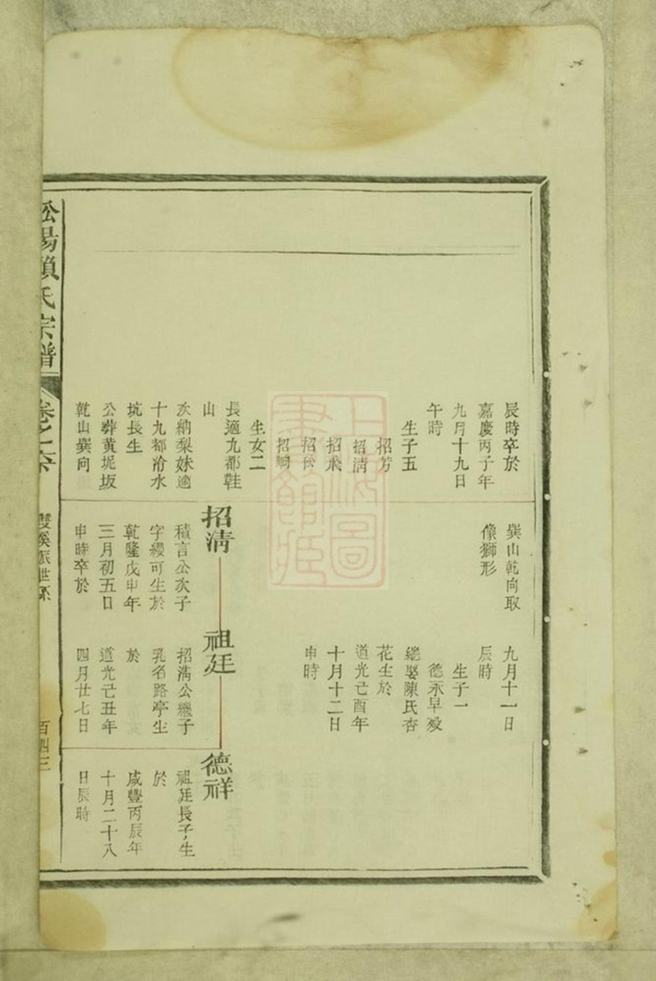 辰時卒於
嘉慶丙子年
九月十九日
午時
生子五
招芳
招清
招飛
招
招
生女二
長適九都
山
次納梨妹適
十九都冷水
坑長生
公葬黃坭坂
乾山巽向
巽山乾向取
像獅形
招清
積言公次子
字纓可生於
乾隆戊申年
三月初五日
申時卒於
九月十一日
辰時
生子一
德承早殁
繼娶陳氏杏
花生於
道光己酉年
十月十二日
申時
祖廷
招清公繼子
乳名路亭生
於
道光己丑年
四月廿七日
德祥
祖廷長子生
於
咸豐丙辰年
十月二十八
日辰時
松陽賴氏宗譜
卷之六
雙溪派世系
百四三
上海圖書館藏